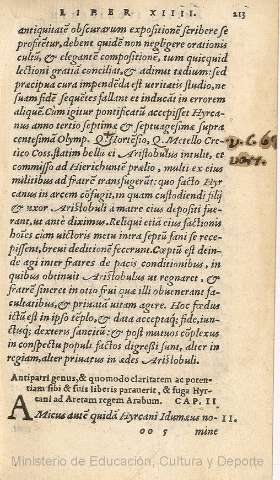 LIBER XIIII. 213
antiquitatē obscurarum expositionē scribere se
profitētur, debent quidē non negligere orationis
cultū, & elegantē compositionē, tum quicquid
lectioni gratiā conciliat, & adimit tædium: sed
præcipua cura impendēda est veritatis studio, ne
suam fidē sequētes fallant et inducāt in errorem
aliquē. Cum igitur pontificatū accepisset Hyrca-
nus anno tertio septimæ & septuagesimæ supra
centesimā Olymp. Q. Hortēsio, Q. Metello Cre-
tico Coss. statim bellū ei Aristobulus intulit, et
commisso ad Hierichuntē prælio, multi ex eius
militibus ad fratrē transfugerūt: quo facto Hyr
canus in arcem cōfugit, in quam custodiēdi filij
& vxor Aristobuli à matre eius depositi fue-
rant, vt antè diximus. Reliqui etiā eius factionis
hoies cùm victoris metu intra septū fani se rece-
pissent, breui deditionē fecerunt. Cœptū est dein-
de agi inter fratres de pacis conditionibus, in
quibus obtinuit Aristobulus vt regnaret, &
fratrē sineret in otio frui quæ illi obuenerāt fa-
cultatibus, & priuatā vitam agere. Hoc fœdus
ictū est in ipso tēplo, & data acceptaq; fide, iun-
ctisq; dexteris sancitū: & post mutuos cōplexus
in conspectu populi factos digressi sunt, alter in
regiam, alter priuatus in ædes Aristobuli.
Antipatri genus, & quomodo claritatem ac poten-
tiam sibi & suis liberis parauerit, & fuga Hyr-
cani ad Aretam regem Arabum. CAP. II
AMicus autē quidā Hyrcani Idumæus no- II.
oo 5 mine
Ministerio de Educación, Cultura y Deporte